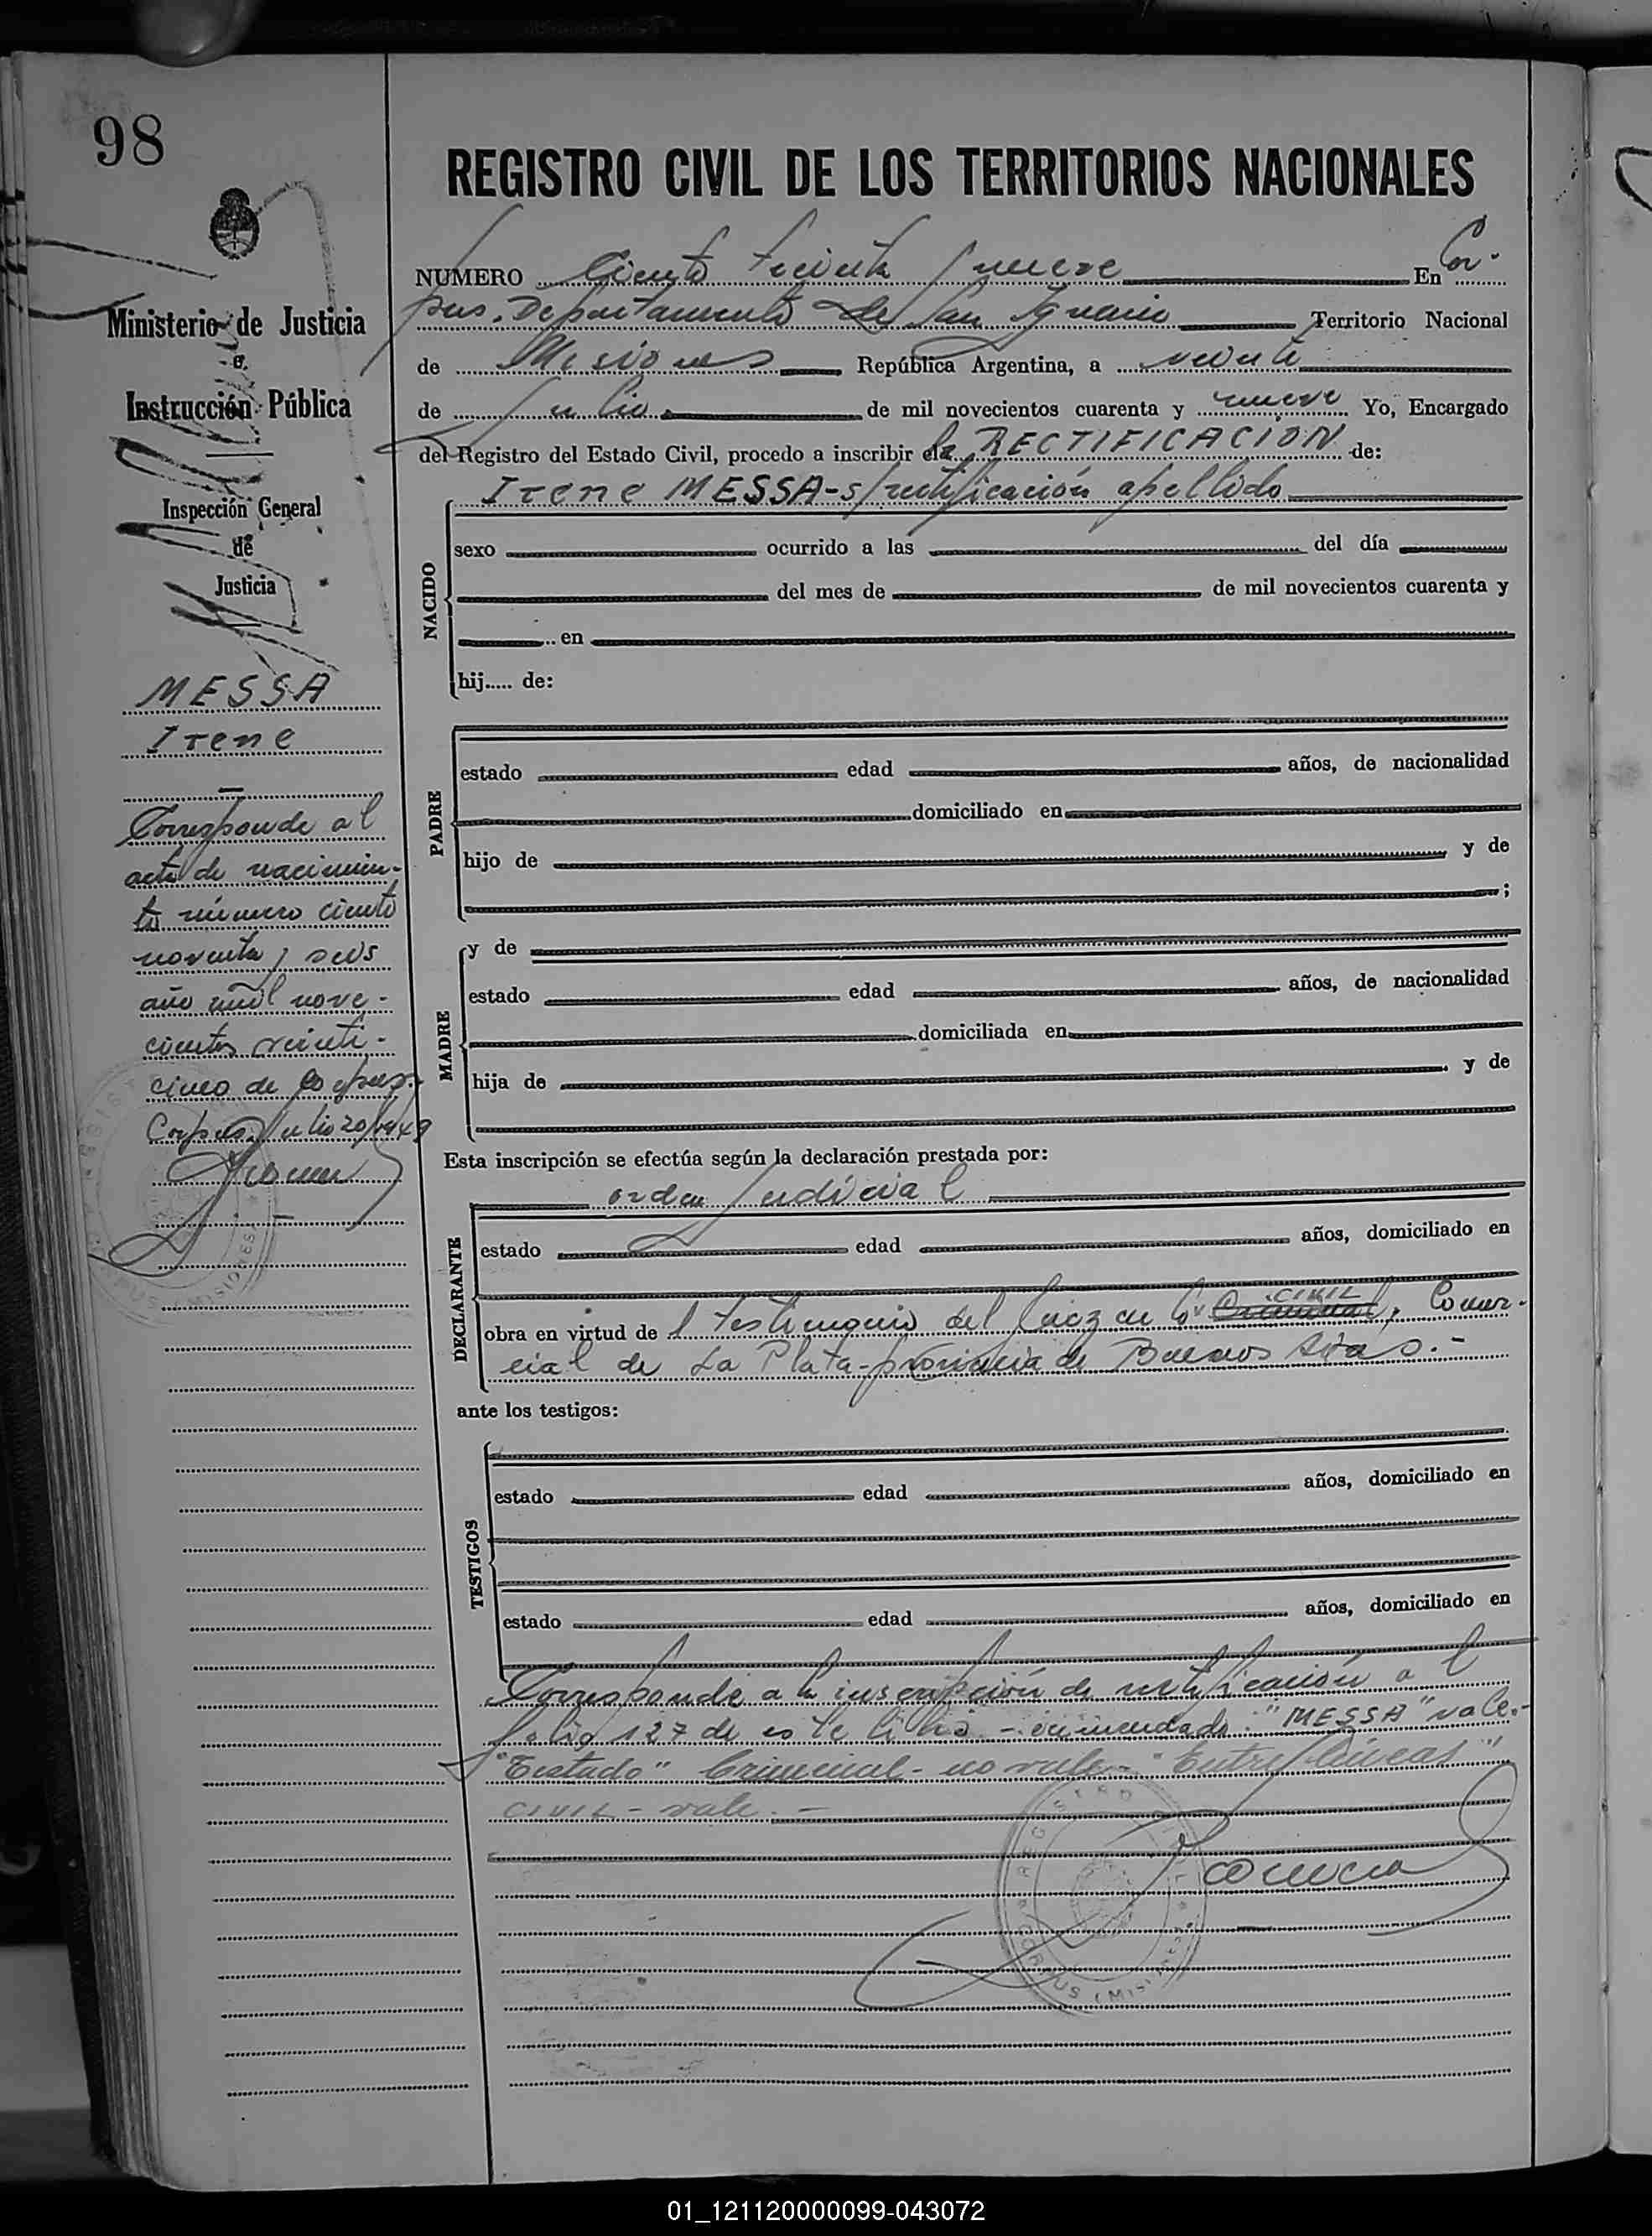 98
REGISTRO CIVIL DE LOS TERRITORIOS NACIONALES
NUMERO Ciento treinta y nueve En Cor-
pus. Departamento de San Ignacio Territorio Nacional
de Misiones República Argentina, a veinte
de Julio de mil novecientos cuarenta y nueve Yo, Encargado
del Registro del Estado Civil, procedo a inscribir la RECTIFICACION de:
Irene MESSA-s/rectificación apellido
NACIDO
sexo ocurrido a las del día
del mes de de mil novecientos cuarenta y
en
hij..... de:
PADRE
estado edad años, de nacionalidad
domiciliado en
hijo de y de
;
MADRE
y de
estado edad años, de nacionalidad
domiciliada en
hija de y de
Esta inscripción se efectúa según la declaración prestada por:
DECLARANTE
orden Judicial
estado edad años, domiciliado en
CIVIL
obra en virtud de l testimonio del Juez en lo Criminal y Comer-
cial de La Plata-provincia de Buenos Aires.-
ante los testigos:
TESTIGOS
estado edad años, domiciliado en
estado edad años, domiciliado en
Corresponde a la inscripción de rectificación al
folio 127 de este libro - enmendado: "MESSA" vale.-
"Testado" Criminal - no vale - "Entre líneas"
CIVIL - vale. -
Ministerio de Justicia
e
Instrucción Pública
Inspección General
de
Justicia
MESSA
Irene
Corresponde al
acta de nacimien-
to número ciento
noventa y seis
año mil nove-
cientos veinti-
cinco de Corpus.
Corpus, Julio 20/949
REGISTRO CIVIL
CORPUS (MISIONES)
01_121120000099-043072